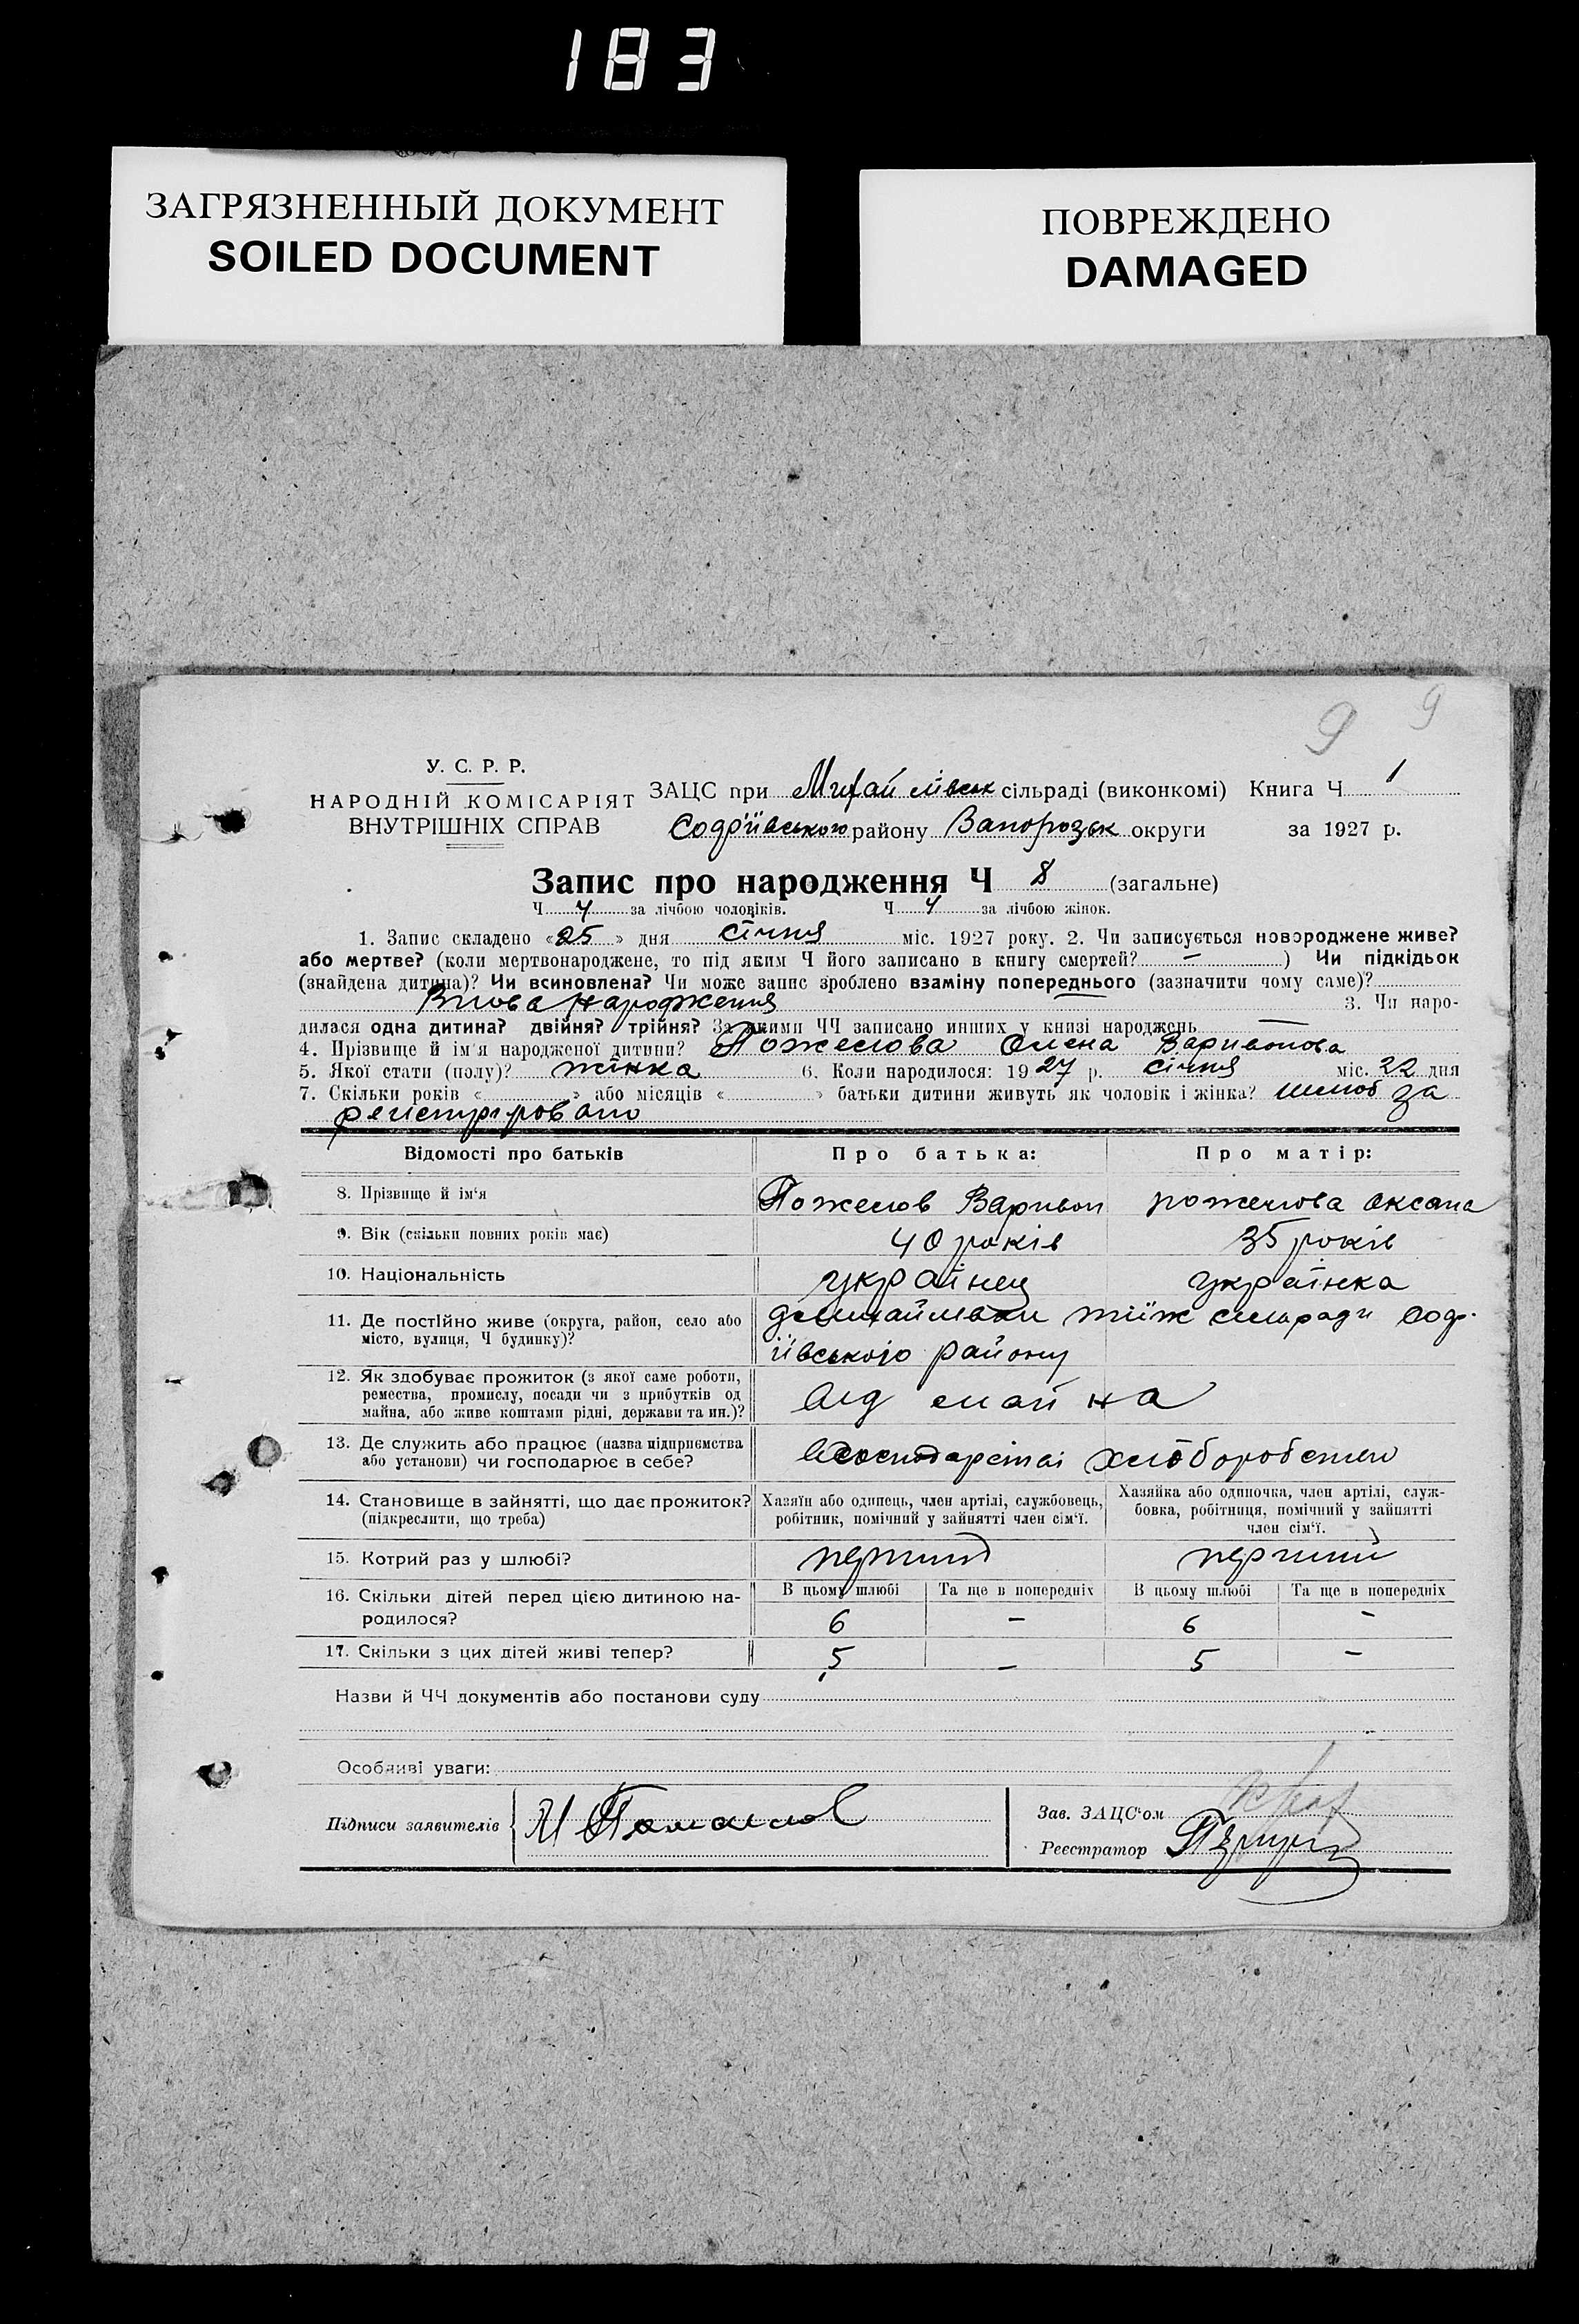 183
ЗАГРЯЗНЕННЫЙ ДОКУМЕНТ
SOILED DOCUMENT
ПОВРЕЖДЕНО
DAMAGED
9 9
У. С. Р. Р.
НАРОДНІЙ КОМІСАРІЯТ
ВНУТРІШНІХ СПРАВ
ЗАЦС при Михайлівськ сільраді (виконкомі) Книга Ч 1
Софіївського району Запорозьк округи за 1927 р.
Запис про народження Ч 8 (загальне)
Ч 4 за лічбою чоловіків. Ч 4 за лічбою жінок.
1. Запис складено «25» дня січня міс. 1927 року. 2. Чи записується новороджене живе?
або мертве? (коли мертвонароджене, то під яким Ч його записано в книгу смертей? — ) Чи підкідьок
(знайдена дитина)? Чи всиновлена? Чи може запис зроблено взаміну попереднього (зазначити чому саме)?
Внова народження 3. Чи наро-
дилася одна дитина? двійня? трійня? За якими ЧЧ записано инших у книзі народжень —
4. Прізвище й ім'я народженої дитини? Пожелова Олена Варивонова
5. Якої стати (полу)? жінка 6. Коли народилося: 1927 р. січня міс. 22 дня
7. Скільки років « » або місяців « » батьки дитини живуть як чоловік і жінка? шлюб за
регистрировано
Відомості про батьків Про батька: Про матір:
8. Прізвище й ім'я Пожелов Варивон пожелова оксана
9. Вік (скільки повних років має) 40 років 35 років
10. Національність українец українка
11. Де постійно живе (округа, район, село або місто, вулиця, Ч будинку)? тііж сильради Соф-
ііівського району
12. Як здобуває прожиток (з якої саме роботи,
ремества, промислу, посади чи з прибутків од
майна, або живе коштами рідні, держави та ин.)? Від майна
13. Де служить або працює (назва підприємства
або установи) чи господарює в себе? хліборобством
14. Становище в зайнятті, що дає прожиток?
(підкреслити, що треба)
Хазяїн або одинець, член артілі, службовець,
робітник, помічний у зайнятті член сім'ї.
Хазяйка або одиночка, член артілі, служ-
бовка, робітниця, помічний у зайнятті
член сім'ї.
15. Котрий раз у шлюбі? перший перший
16. Скільки дітей перед цією дитиною на-
родилося?
В цьому шлюбі Та ще в попередніх В цьому шлюбі Та ще в попередніх
6 – 6 –
17. Скільки з цих дітей живі тепер? 5 – 5 –
Назви й ЧЧ документів або постанови суду
Особливі уваги:
Підписи заявителів
Зав. ЗАЦС'ом
Реєстратор